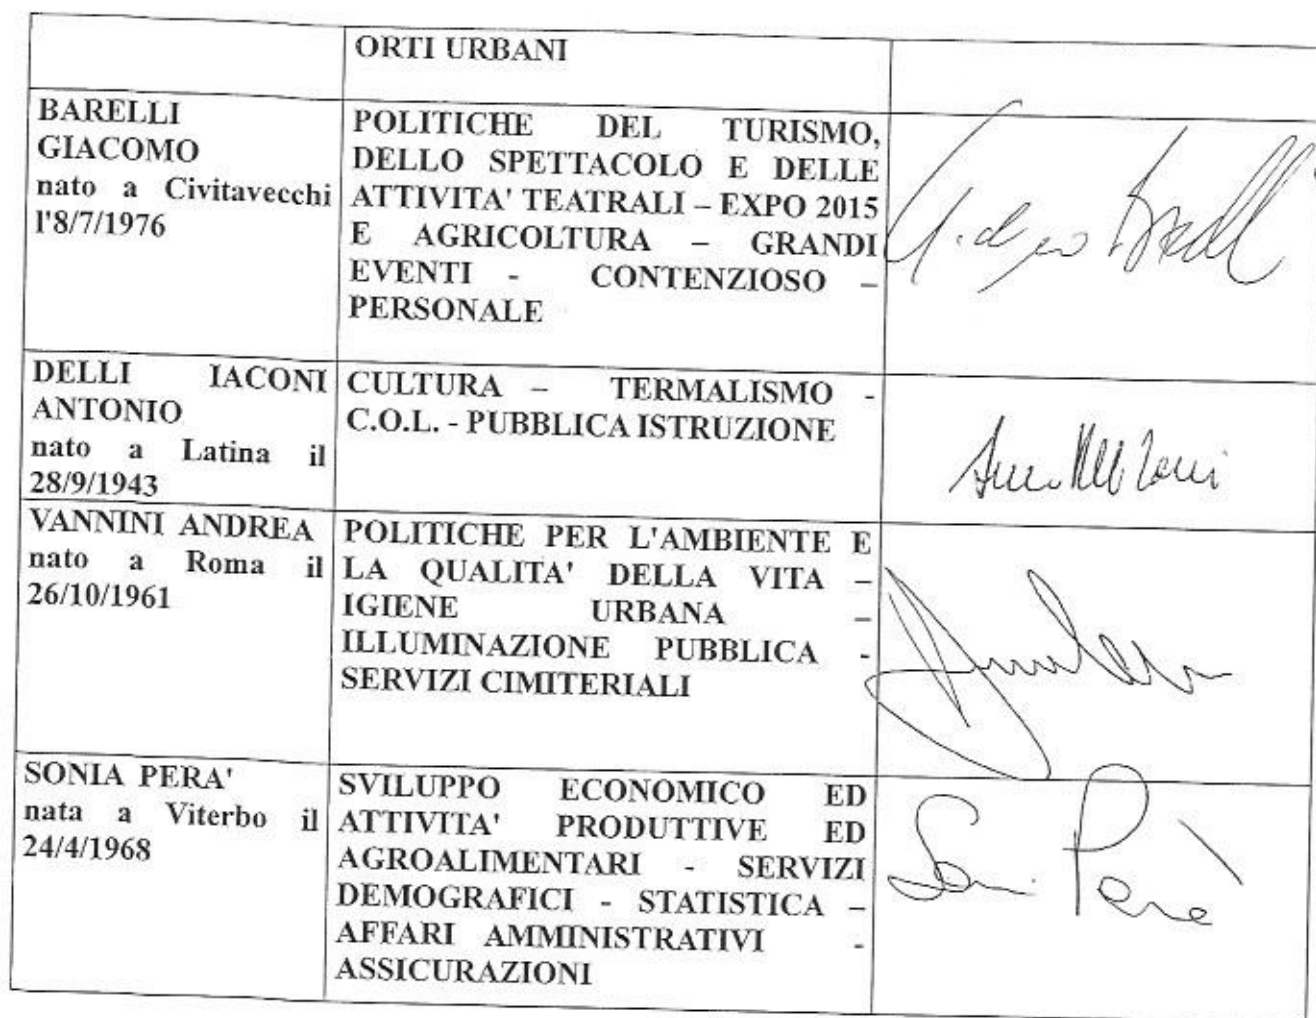 ORTI URBANI
BARELLI
GIACOMO
nato a Civitavecchi
l'8/7/1976
POLITICHE DEL TURISMO,
DELLO SPETTACOLO E DELLE
ATTIVITA' TEATRALI – EXPO 2015
E AGRICOLTURA – GRANDI
EVENTI - CONTENZIOSO –
PERSONALE
DELLI IACONI
ANTONIO
nato a Latina il
28/9/1943
CULTURA – TERMALISMO -
C.O.L. - PUBBLICA ISTRUZIONE
VANNINI ANDREA
nato a Roma il
26/10/1961
POLITICHE PER L'AMBIENTE E
LA QUALITA' DELLA VITA –
IGIENE URBANA –
ILLUMINAZIONE PUBBLICA -
SERVIZI CIMITERIALI
SONIA PERA'
nata a Viterbo il
24/4/1968
SVILUPPO ECONOMICO ED
ATTIVITA' PRODUTTIVE ED
AGROALIMENTARI - SERVIZI
DEMOGRAFICI - STATISTICA –
AFFARI AMMINISTRATIVI -
ASSICURAZIONI